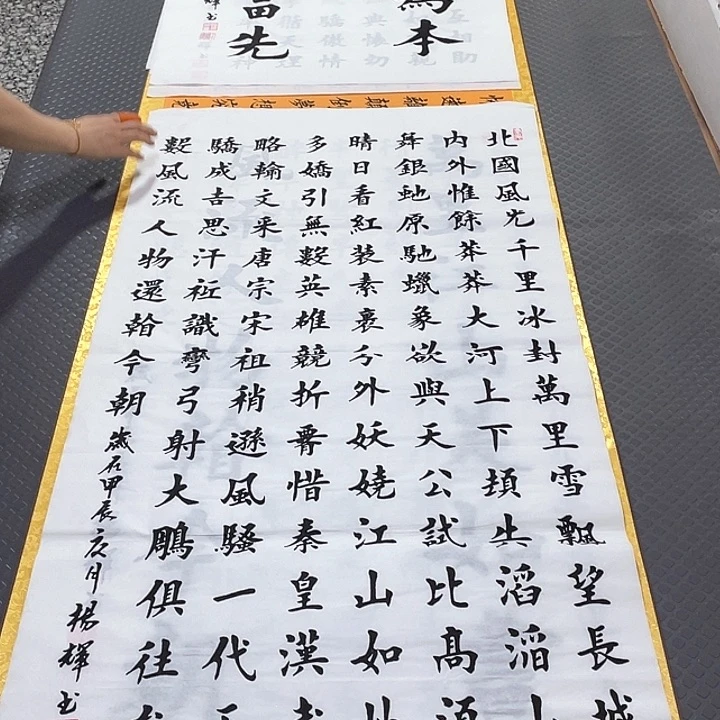 本
先
輝书
北國風光千里冰封萬里雪飄望長城
內外惟餘莽莽大河上下頓失滔滔山
舞銀蛇原馳蠟象欲與天公試比高須
晴日看紅裝素裹分外妖嬈江山如此
多嬌引無數英雄競折腰惜秦皇漢武
略輸文采唐宗宋祖稍遜風騷一代天
驕成吉思汗祗識彎弓射大鵰俱往矣
數風流人物還看今朝
歲在甲辰夏月楊輝书